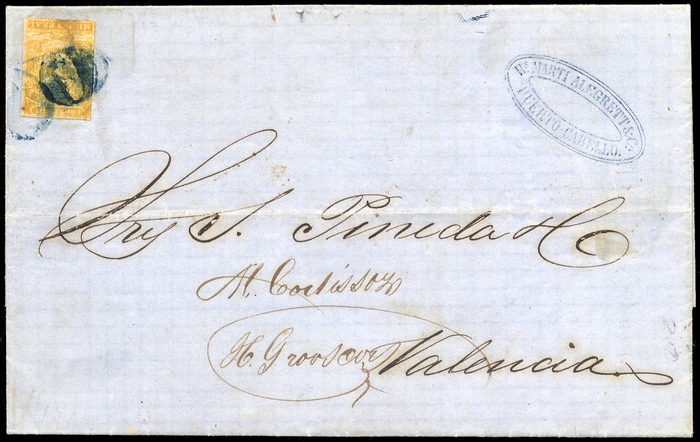 Hs. MARTI ALEGRETT & Ca.
PUERTO-CABELLO.
Srs J. Pineda H
M. Cortissoz
H. Grooscors
Valencia.